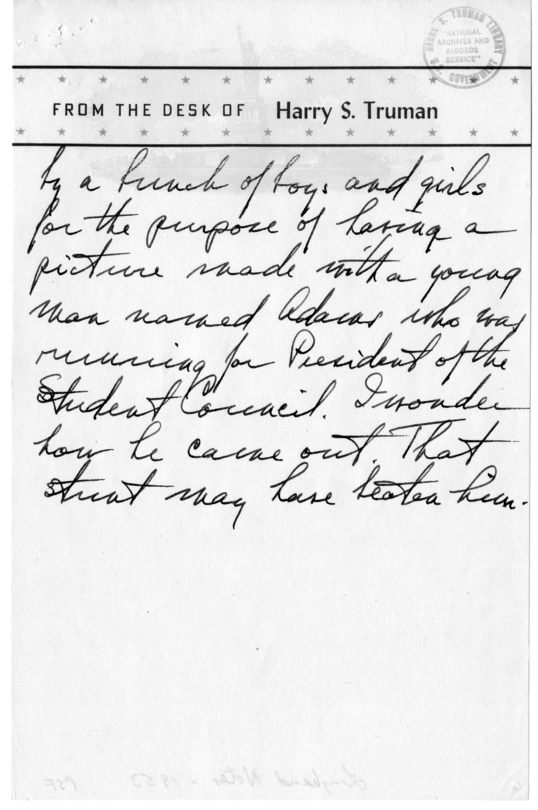 HARRY S. TRUMAN LIBRARY
"NATIONAL
ARCHIVES AND
RECORDS
SERVICE"
U.S. GOVERNMENT
FROM THE DESK OF Harry S. Truman
by a bunch of boys and girls
for the purpose of having a
picture made with a young
man named Adams who was
running for President of the
Student Council. I wonder
how he came out. That
stunt may have beaten him.
Longhand Notes - 1953
PSF